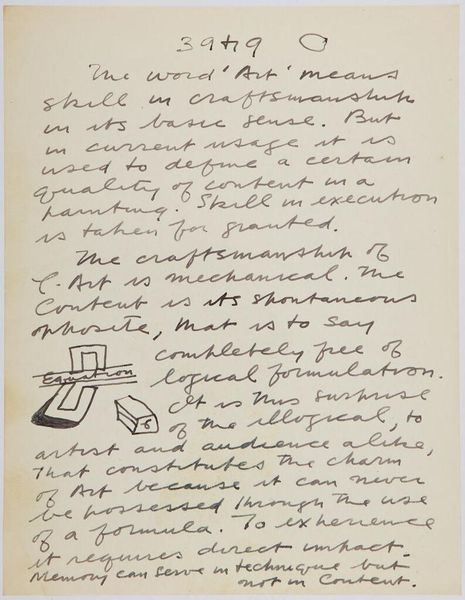 39+19
The word 'Art' means
skill in craftsmanship
in its basic sense. But
in current usage it is
used to define a certain
quality of content in a
painting. Skill in execution
is taken for granted.
The craftsmanship of
Art is mechanical. The
Content is its spontaneous
opposite, that is to say
completely free of
logical formulation.
Equation
It is this surprise
of the illogical, to
6
artist and audience alike,
that constitutes the charm
of Art because it can never
be possessed through the use
of a formula. To experience
it requires direct impact.
Memory can serve in technique but
not in Content.